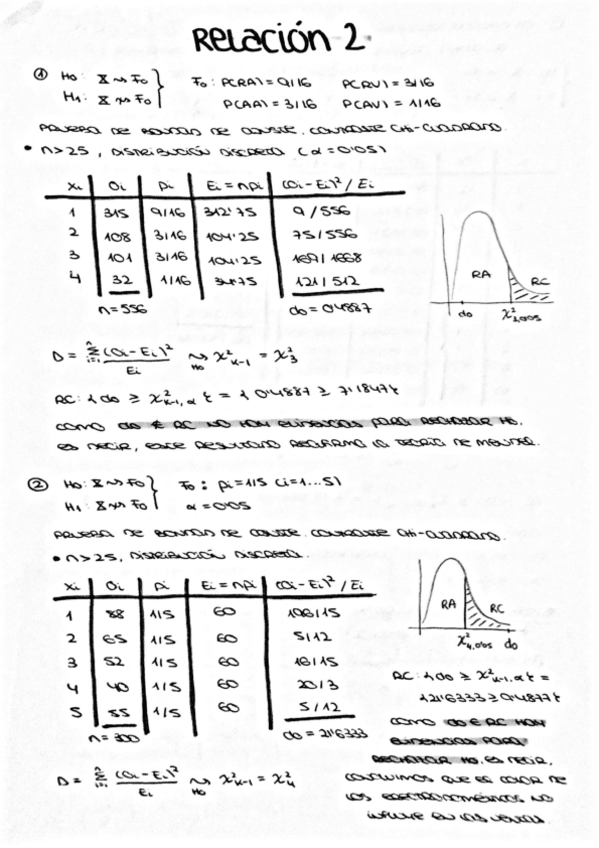 Relación 2
① H₀: X ⇝ F₀ } F₀: P(RA) = 9/16 P(RV) = 3/16
H₁: X ⇝̸ F₀ } P(AA) = 3/16 P(AV) = 1/16
PRUEBA DE BONDAD DE AJUSTE. CONTRASTE CHI-CUADRADO.
• n>25, DISTRIBUCIÓN DISCRETA (α=0'05)
xi Oi pi Ei = npi (Oi - Ei)² / Ei
1 315 9/16 312'75 9/556
2 108 3/16 104'25 75/556
3 101 3/16 104'25 169/1668
4 32 1/16 34'75
n=556 d₀=0'4887
RA RC
d₀ χ²₃,₀'₀₅
D = Σ (Oi - Ei)² / Ei ⇝ H₀ χ²k-1 = χ²₃
RC: { d₀ ≥ χ²k-1,α } = { 0'4887 ≥ 7'1847 }
COMO d₀ ∉ RC NO HAY EVIDENCIAS PARA RECHAZAR H₀,
ES DECIR, ESTE RESULTADO REAFIRMA LA TEORÍA DE MENDEL.
② H₀: X ⇝ F₀ } F₀: pi=1/5 (i=1...5)
H₁: X ⇝̸ F₀ } α=0'05
PRUEBA DE BONDAD DE AJUSTE. CONTRASTE CHI-CUADRADO.
• n>25, DISTRIBUCIÓN DISCRETA.
xi Oi pi Ei = npi (Oi - Ei)² / Ei
1 88 1/5 60 196/15
2 65 1/5 60 5/12
3 52 1/5 60 16/15
4 40 1/5 60 20/3
5 55 1/5 60 5/12
n=300 d₀ = 21'6333
D = Σ (Oi - Ei)² / Ei ⇝ H₀ χ²k-1 = χ²₄
RA RC
χ²₄,₀'₀₅ d₀
RC: { d₀ ≥ χ²k-1,α } =
{ 21'6333 ≥ 0'4877 }
COMO d₀ ∈ RC HAY
EVIDENCIAS PARA
RECHAZAR H₀, ES DECIR,
CONCLUIMOS QUE EL COLOR DE
LOS ELECTRODOMÉSTICOS NO
INFLUYE EN LAS VENTAS.